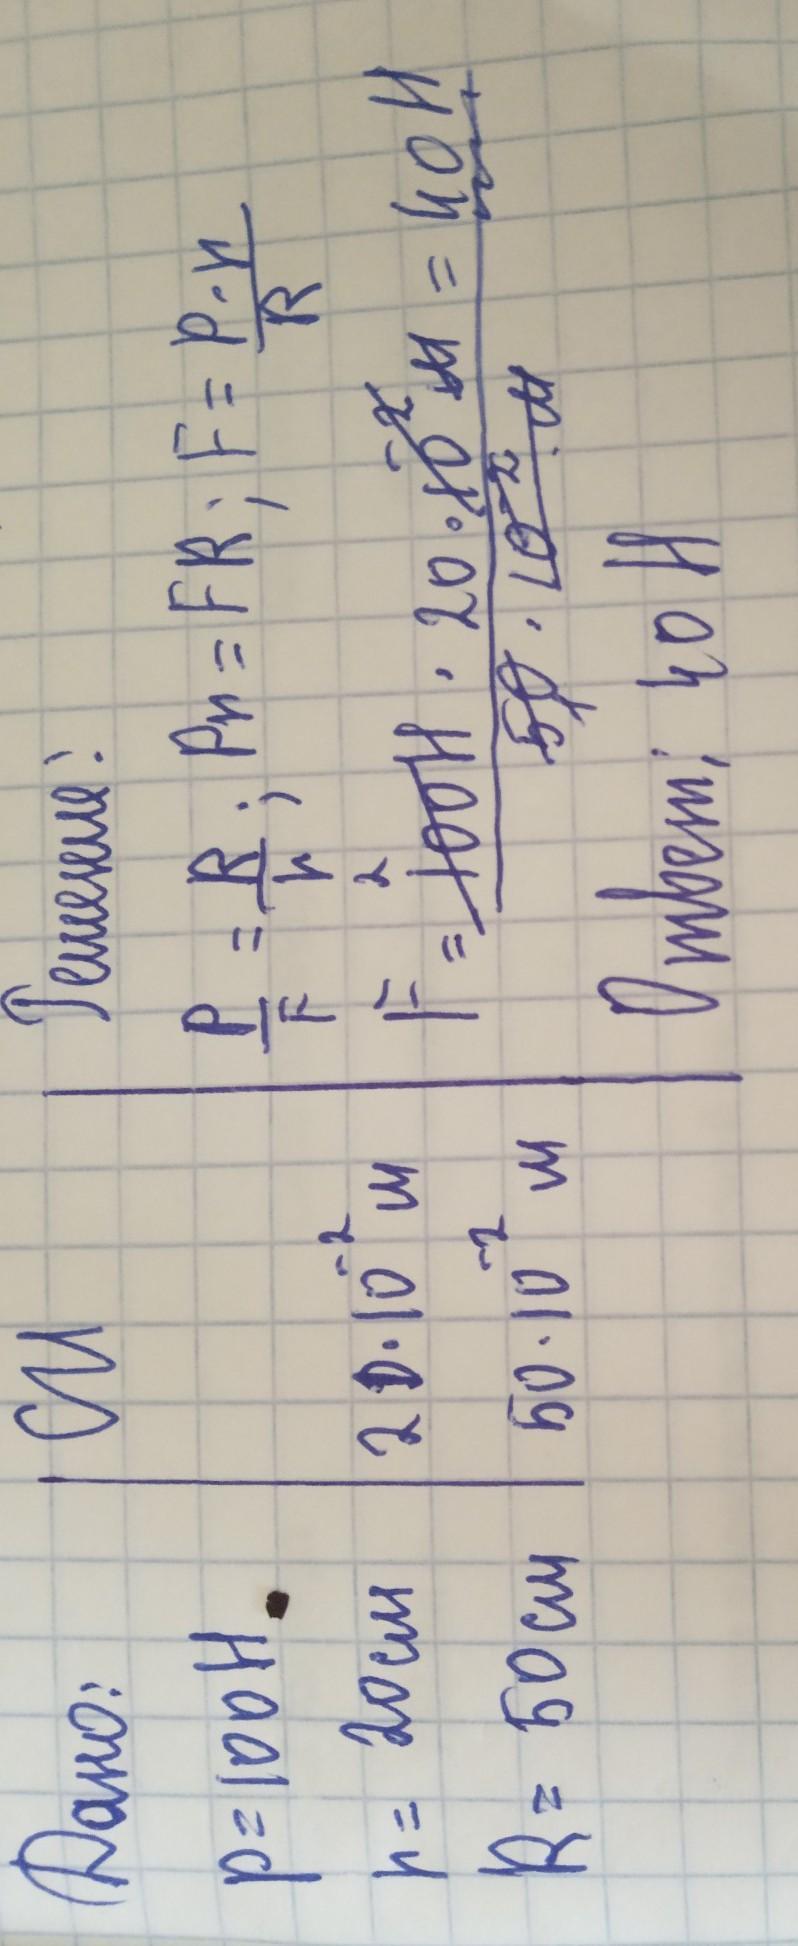 Дано:
p=100Н
r= 20см
R= 50см
СИ
20·10⁻² м
50·10⁻² м
Решение:
P/F = R/r ; Pr = FR ; F = P·r/R
F = 100Н · 20·10⁻² м / 50·10⁻² м = 40Н
2
1
Ответ: 40Н